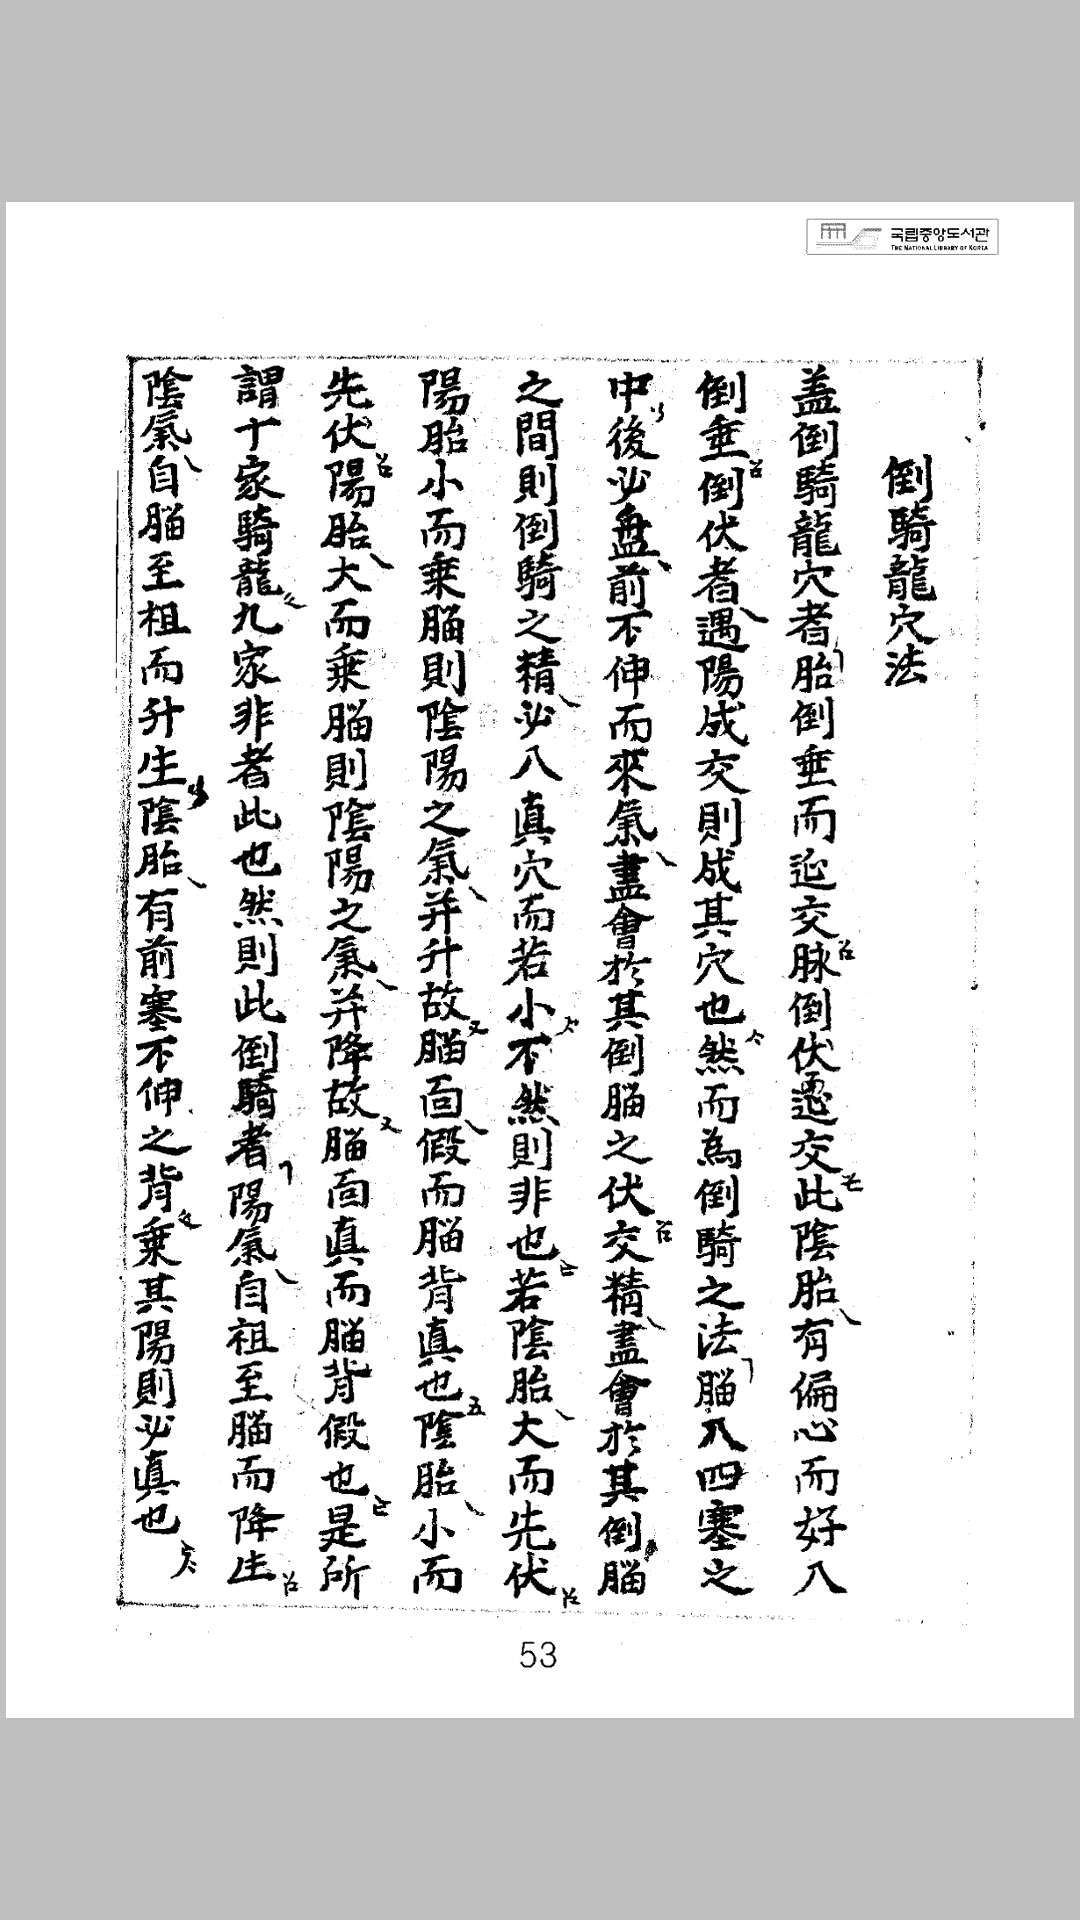 국립중앙도서관
THE NATIONAL LIBRARY OF KOREA
倒騎龍穴法
盖倒騎龍穴者胎倒垂而迎交脉倒伏還交此陰胎有偏心而好入
倒垂倒伏者遇陽成交則成其穴也然而為倒騎之法腦入四塞之
中後必盘前不伸而來氣盡會於其倒腦之伏交精盡會於其倒腦
之間則倒騎之精必入真穴而若小不然則非也若陰胎大而先伏
陽胎小而乗腦則陰陽之氣并升故腦面假而腦背真也陰胎小而
先伏陽胎大而乗腦則陰陽之氣并降故腦面真而腦背假也是所
謂十家騎龍九家非者此也然則此倒騎者陽氣自祖至腦而降生
陰氣自腦至祖而升生陰胎有前塞不伸之背乗其陽則必真也
53